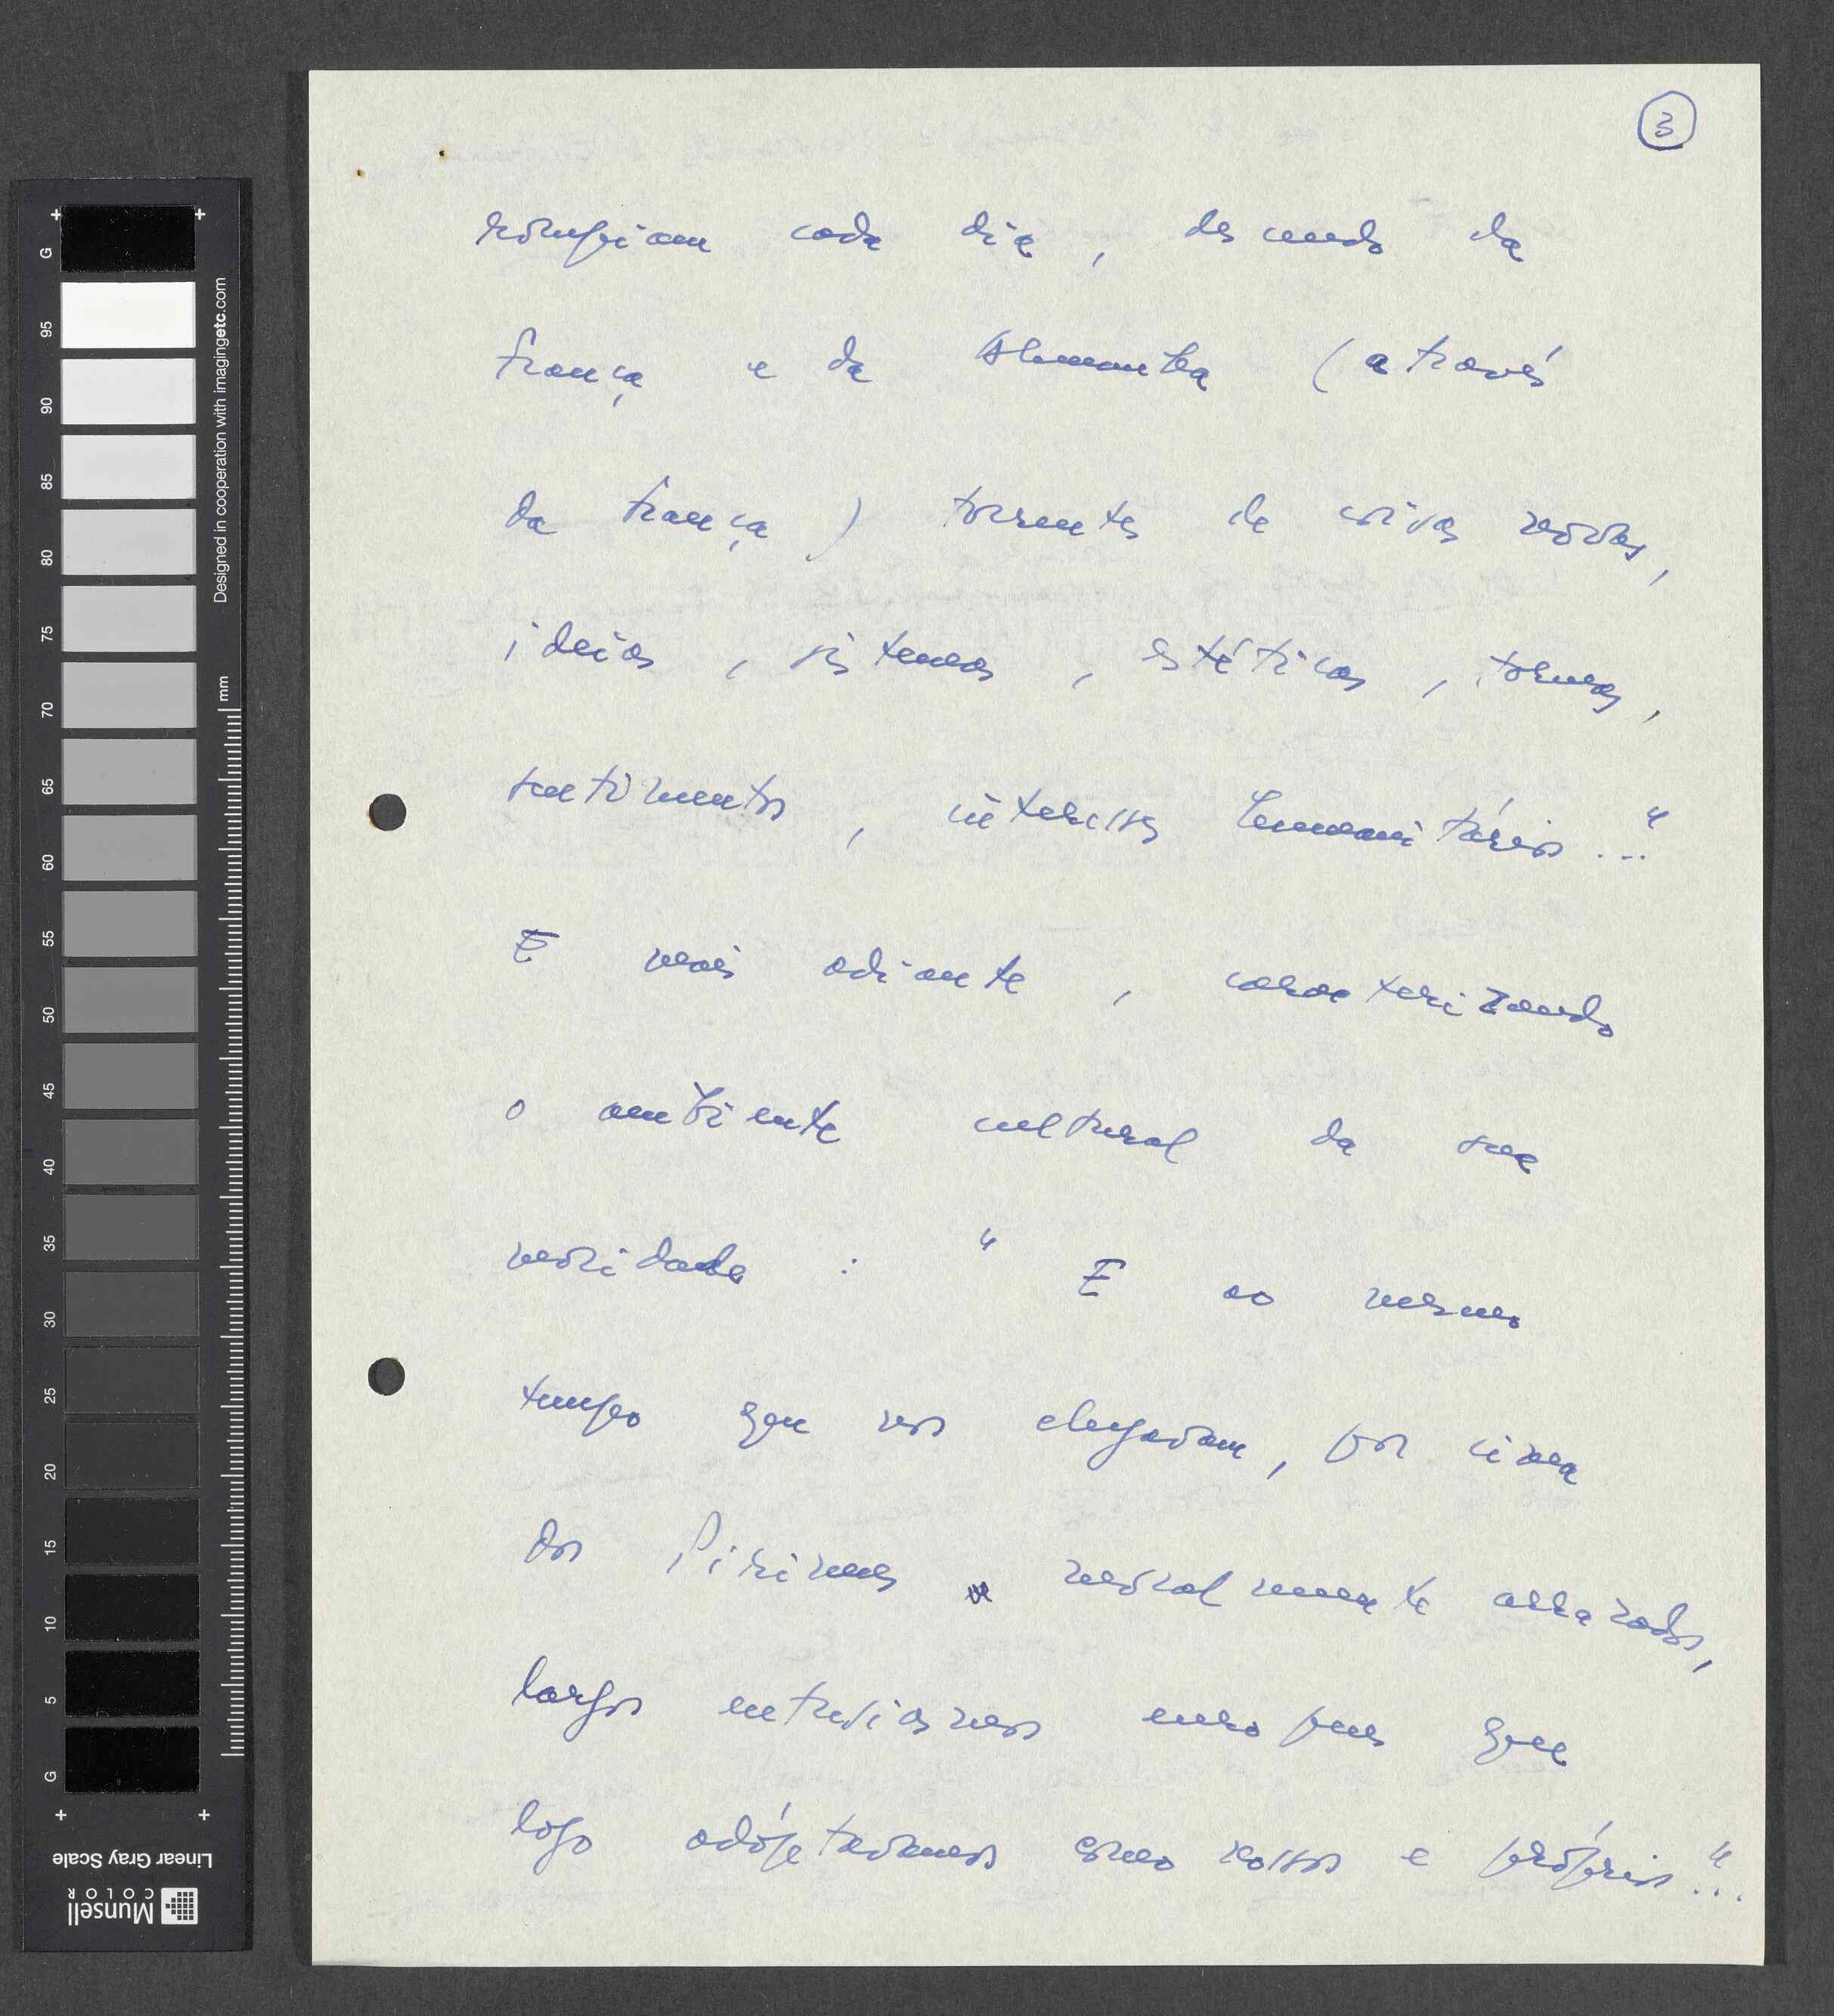 3
rompiam cada dia, descendo da
França e da Alemanha (através
da França) torrentes de coisas novas,
ideias, sistemas, estéticas, formas,
sentimentos, interesses humanitários..."
E mais adiante, caracterizando
o ambiente cultural da sua
mocidade: " E ao mesmo
tempo que nos chegavam, por cima
dos Pirinéus moralmente arrasados,
largos entusiasmos europeus que
logo adóptávamos como nossos e próprios"...
G
95
90
85
80
75
70
65
60
55
50
45
40
35
30
25
20
15
10
5
G
Designed in cooperation with imagingetc.com
mm
Linear Gray Scale
Munsell
COLOR